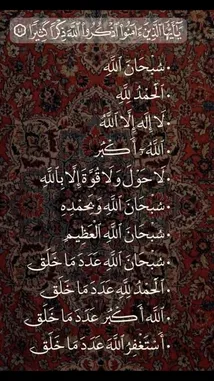 يَٰٓأَيُّهَا ٱلَّذِينَ ءَامَنُوا۟ ٱذْكُرُوا۟ ٱللَّهَ ذِكْرًا كَثِيرًا
• سُبْحَانَ اللَّهِ
• الْحَمْدُ لِلَّهِ
• لَا إِلَٰهَ إِلَّا اللَّهُ
• اللَّهُ أَكْبَر
• لَا حَوْلَ وَلَا قُوَّةَ إِلَّا بِاللَّهِ
• سُبْحَانَ اللَّهِ وَبِحَمْدِهِ
• سُبْحَانَ اللَّهِ الْعَظِيمِ
• سُبْحَانَ اللَّهِ عَدَدَ مَا خَلَقَ
• الْحَمْدُ لِلَّهِ عَدَدَ مَا خَلَقَ
• اللَّهُ أَكْبَر عَدَدَ مَا خَلَقَ
• أَسْتَغْفِرُ اللَّهَ عَدَدَ مَا خَلَقَ